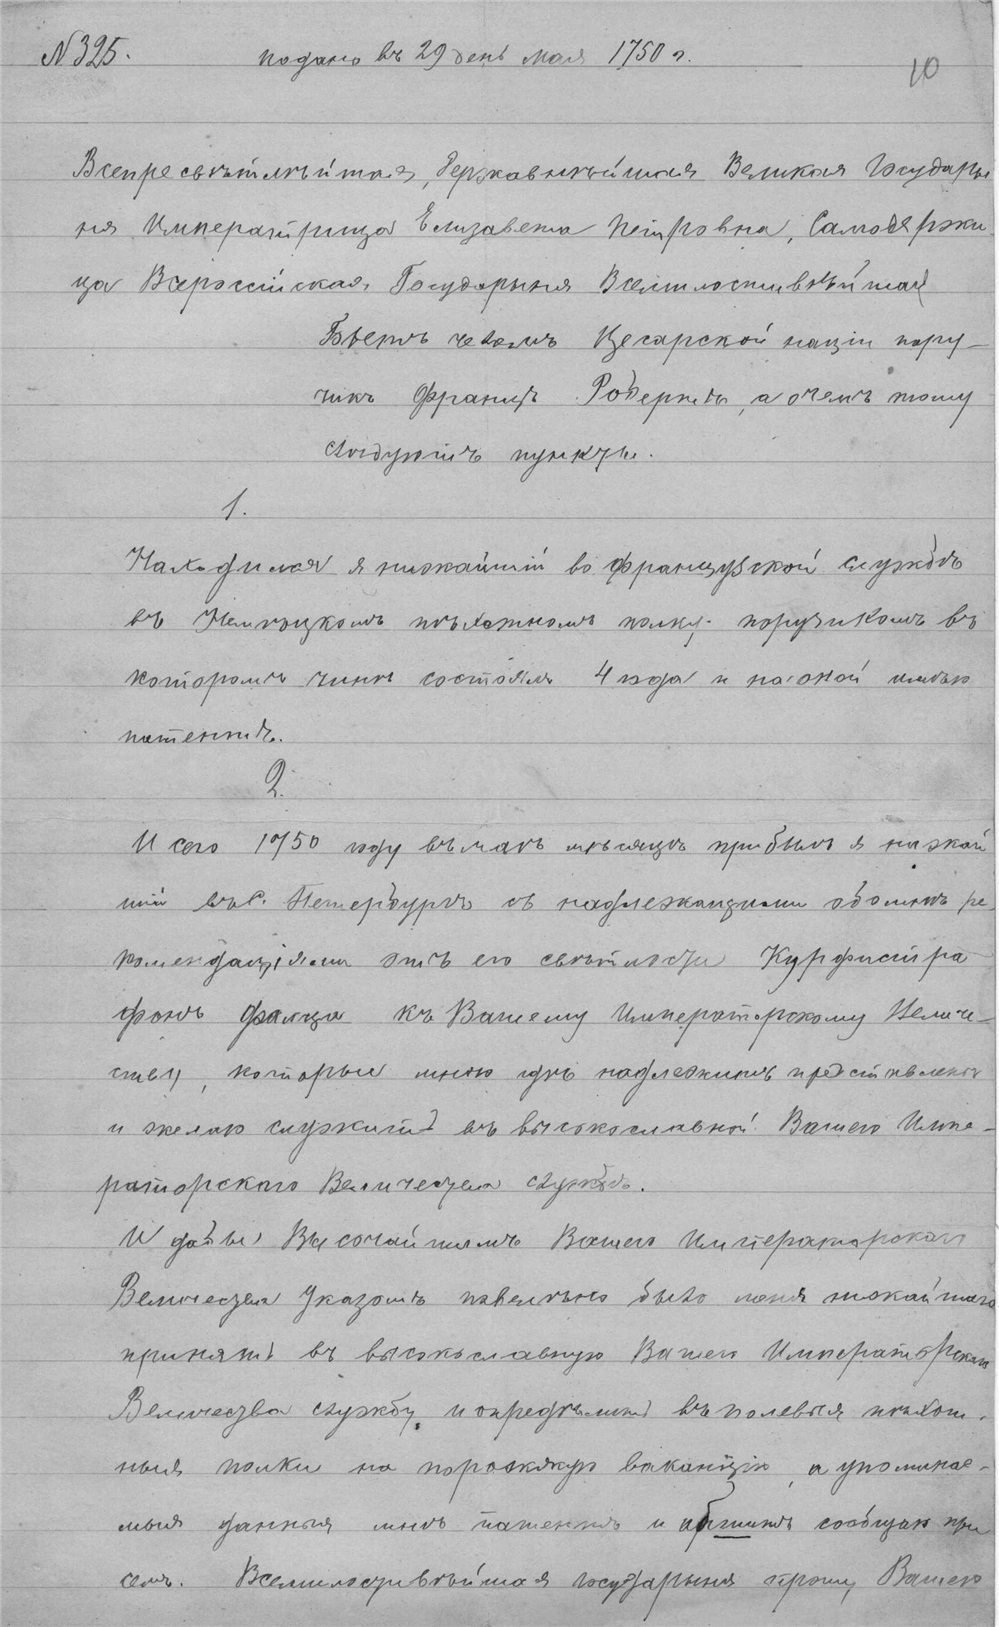 № 325. подано въ 29 день мая 1750 г. 10
Всепресвѣтлѣйшая, Державнѣйшая Великая Государы
ня Императрица Елизавета Петровна, Самодержи
ца Всероссійская, Государыня Всемилостивѣйшая
Бьетъ челомъ Цесарской націи пору–
чикъ Францъ Робертъ, а о чемъ тому
слѣдуютъ пункты.
1.
Находился я нижайшій во французской службѣ
въ Немѣцкомъ пѣхотномъ полку поручикомъ въ
которомъ чинѣ состоялъ 4 года и на оной имѣю
патентъ.
2.
И сего 1750 году въ маѣ мѣсяцѣ прибылъ я нижай
шій въ С. Петербургъ съ надлежащими обо мнѣ ре–
комендаціями отъ его свѣтлости Курфистра
фонъ Фалца къ Вашему Императорскому Величе–
ству, которые мною гдѣ надлежитъ представлены
и желаю служить въ высокославной Вашего Импе–
раторского Величества службѣ.
И дабы Высочайшимъ Вашего Императорского
Величества Указомъ повелѣно было меня нижайшаго
принять въ высокославную Вашего Императорского
Величества службу и опредѣлить въ полевыя пѣхот–
ныя полки на порожжую ваканцію, а упоминае–
мыя данныя мнѣ патентъ и абшитъ сообщаю при
семъ. Всемилостивѣйшая государыня прошу Вашего